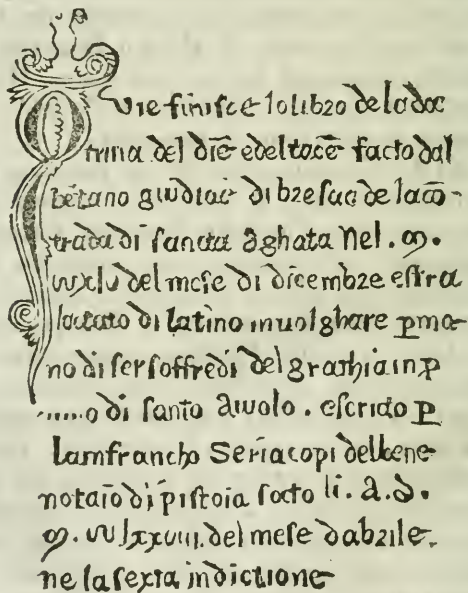 Quie finisce lo libro de la doc
trina del dirē e del tacē facto dal
bētano giudice di brescia de la cō-
trada di sancta aghata Nel. m.
ccxlv del mese di dicembre e stra
lactato di latino in volghare p ma-
no di ser soffredi del grathia in p
di santo aiuolo. e scrido p
Lamfrancho Seriacopi del bene
notaio di pistoia socto li. a. d.
m. cclxxviii. del mese dabrile.
ne la sexta indictione